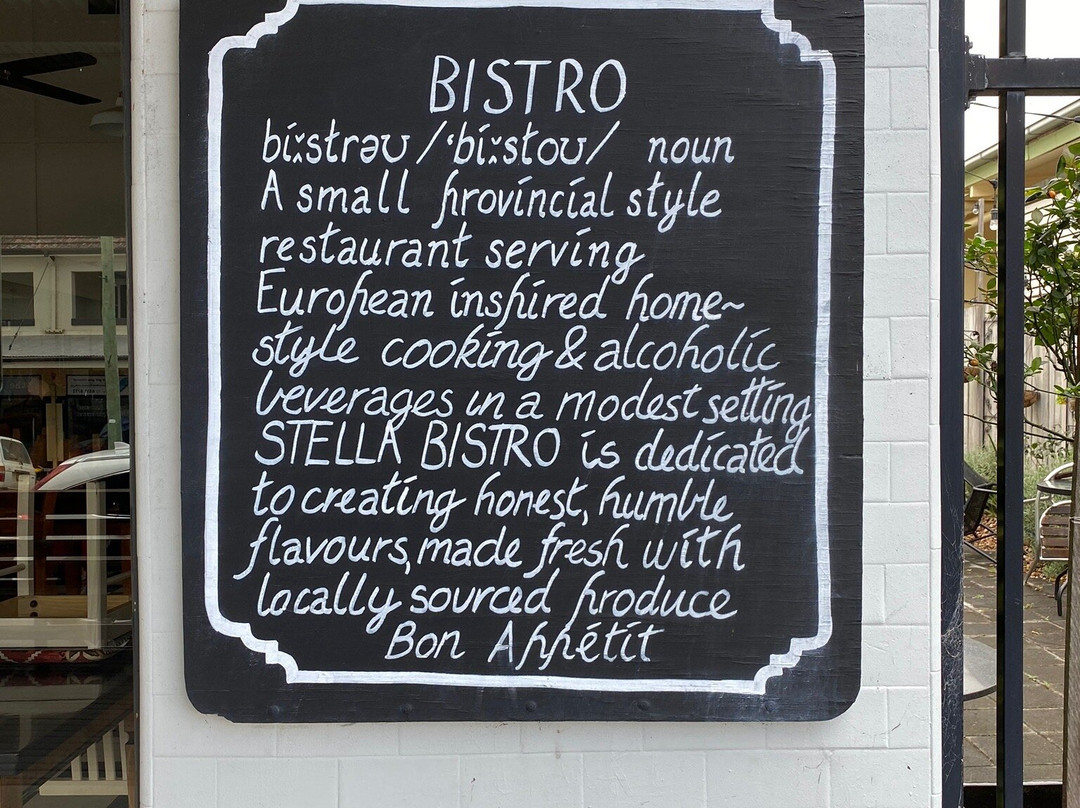 BISTRO
bi:strəʊ /'bi:stoʊ/ noun
A small provincial style
restaurant serving
European inspired home~
style cooking & alcoholic
beverages in a modest setting
STELLA BISTRO is dedicated
to creating honest, humble
flavours, made fresh with
locally sourced produce
Bon Appétit